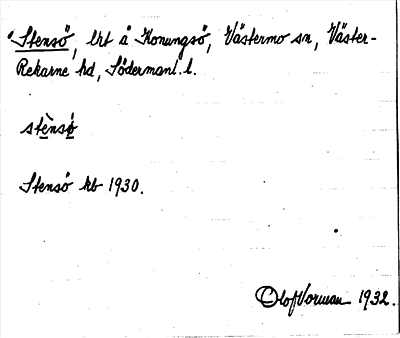 Stensö, lht å Konungsö, Västermo sn, Väster-
Rekarne hd, Södermanl. l.
stènsǿ
Stensö kb 1930.
Olof Vorman 1932.